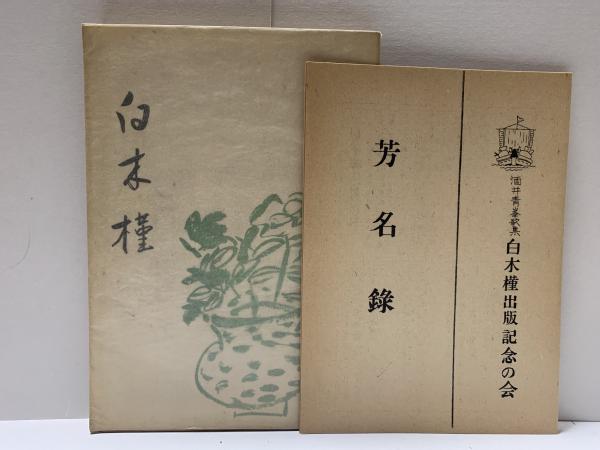 白木槿
酒井青峯歌集
白木槿出版記念の会
芳名錄